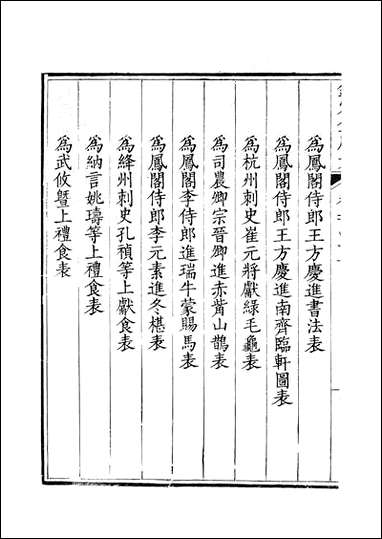 為鳳閣侍郎王方慶進書法表
為鳳閣侍郎王方慶進南齊臨軒圖表
為杭州刺史崔元將獻綠毛龜表
為司農卿宗晉卿進赤觜山鵲表
為鳳閣李侍郎進瑞牛蒙賜馬表
為鳳閣侍郎李元素進冬椹表
為絳州刺史孔禎等上獻食表
為納言姚璹等上禮食表
為武攸暨上禮食表